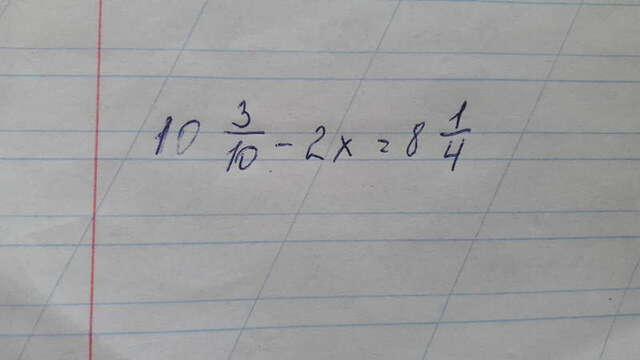 10 3/10 - 2x = 8 1/4